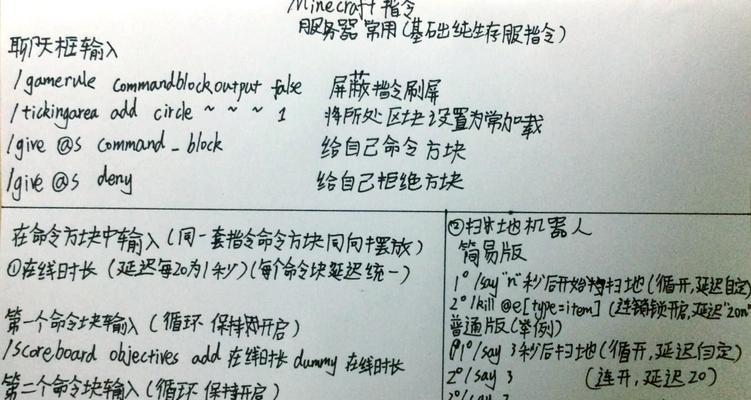 Minecraft 指令
服务器常用(基础出纯生存服指令)
聊天框输入
/gamerule commandblockoutput false 屏蔽指令刷屏
/tickingarea add circle ~ ~ ~ 1 将所处区块设置为常加载
/give @s command_block 给自己命令方块
/give @s deny 给自己拒绝方块
在命令方块中输入(同一套指令命令方块同向摆放)
①在线时长(延迟每20为1秒)(每个命令块延迟统一)
第一个命令块输入(循环 保持开启)
/scoreboard objectives add 在线时长 dummy 在线时长
第二个命令块输入(循环 保持开启)
②扫地机器人
简易版
1° /say "n"秒后开始扫地(循开,延迟自定)
2° /kill @e[type=item](连锁开启,延迟"20n")
普通版(举例)
1° /say 3秒后扫地(循开,延迟自定)
2° /say 3 (连开,延迟20)